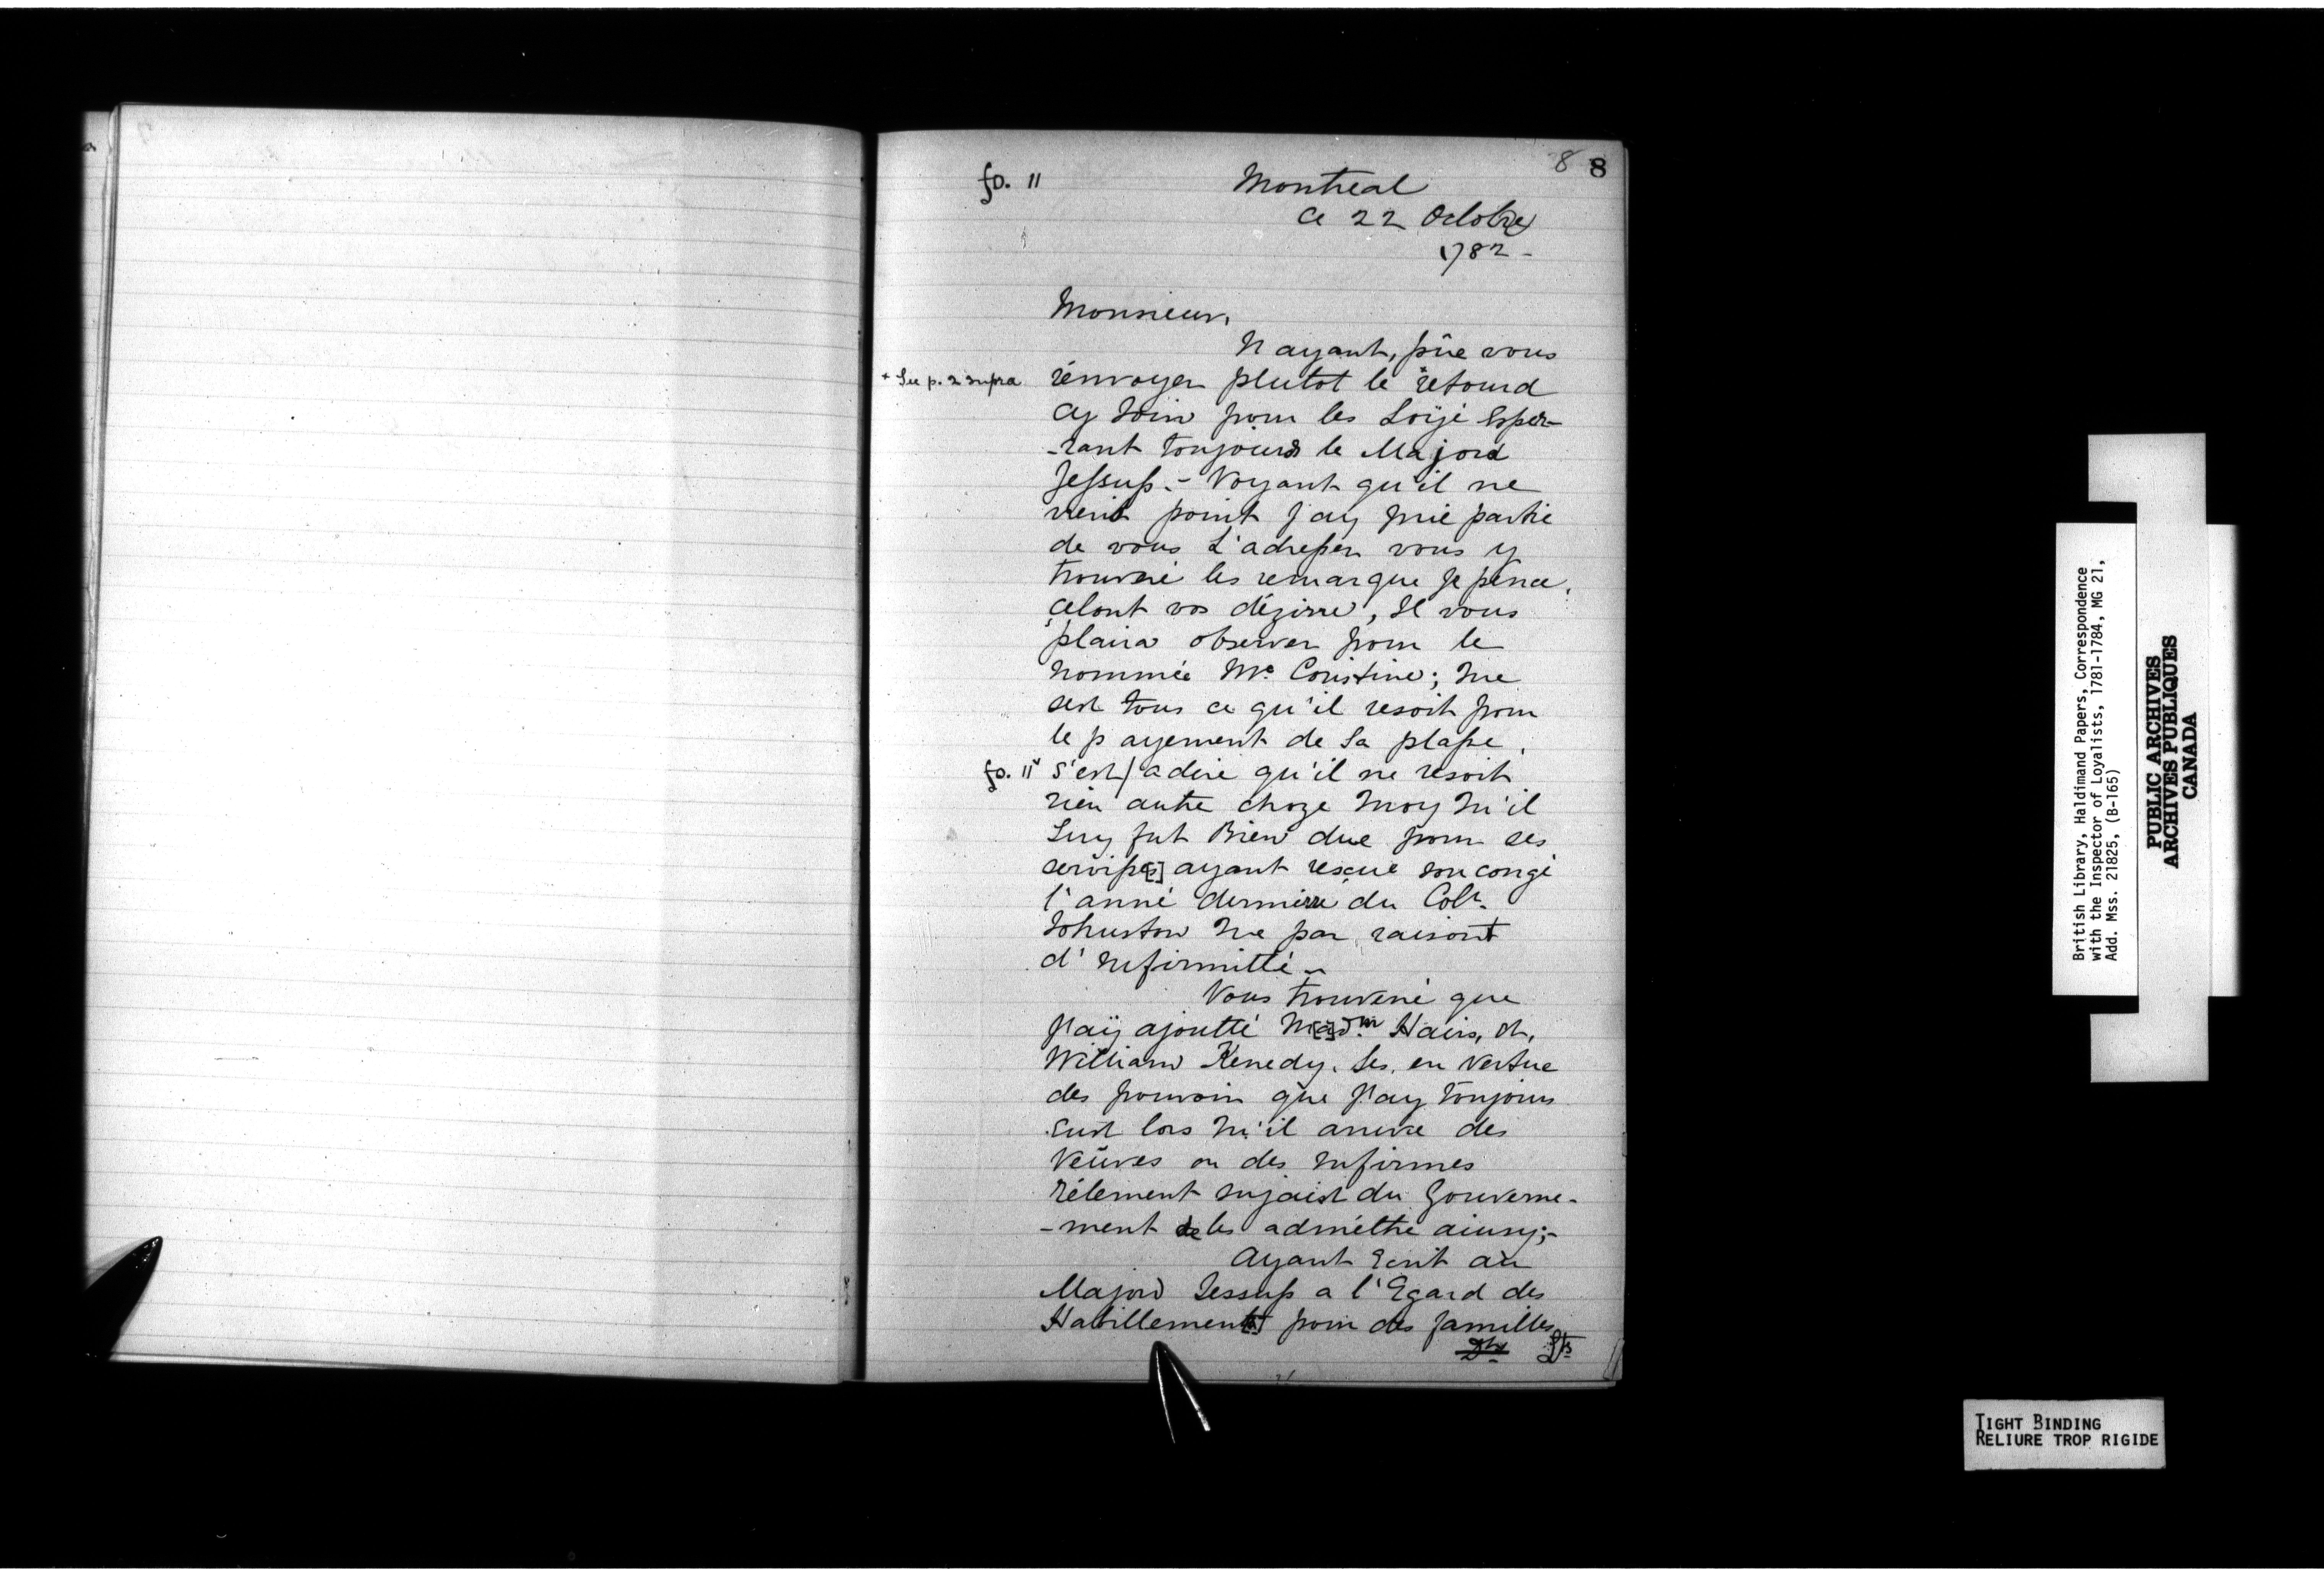 8 8
fo. 11 Montreal
Ce 22 Octobre
1782 -
Monsieur,
N ayant, pûe vous
+ See p. 2 supra rénvoyer plutot le +retourd
Cy Join pour les Loijé Esper-
-rant toujours le Majord
Jessup. - Voyant qu'il ne
vient point J'ay prie partie
de vous L'adresser vous y
trouveré les remarque Je pence,
Celont vos dézirre, Il vous
plaira observer pour le
nommée Mc Coristine; que
sest tous ce qu'il resoit pour
le payement de Sa plasse,
fo. 11v s'est/ a dire qu'il ne resoit
rien autre choze moy qu'il
Luy fut Bien due pour ses
servisse[s] ayant resçue son congé
l'anné dernierre du Colr.
Johnston que par raisont
d'Infirmitté -
Vous trouveré que
J'aÿ ajoutté M[a]dm. Hairs, et,
William Kenedy. Ses, en Vertue
des pouvoir que J'ay toujours
eust lors qu'il arrive des
Veûves ou des Infirmes
rélement sujaist du Gouverne-
-ment de les adméttre ainsy;-
Ayant Ecrit au
Majord Jessup a l'Egard des
Habillement[s] pour des familles
Lts
British Library, Haldimand Papers, Correspondence
with the Inspector of Loyalists, 1781-1784, MG 21,
Add. Mss. 21825, (B-165)
PUBLIC ARCHIVES
ARCHIVES PUBLIQUES
CANADA
TIGHT BINDING
RELIURE TROP RIGIDE